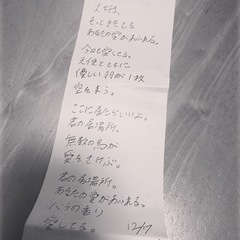 大好き、
そっときとる
あなたの愛があふれる。
今日も愛してる。
天使とともに
優しい羽が1枚
空を舞う。
ここに居たらいいよ。
君の居場所、
無数の鳥が
愛をさけぶ。
君の居場所。
あなたの愛があふれる。
バラの香り
愛してる。
12/7